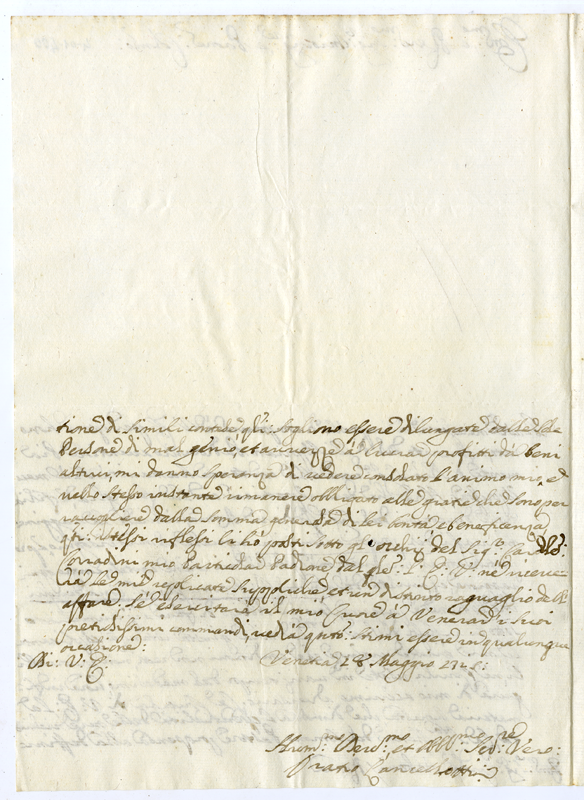 tione di simili contese q.li sogliono essere dilungate dalle
Persone di mal genio, et avvezze à ricavar profitti da beni
altrui, mi danno speranza di vedere consolato l'animo mio, e
nello stesso instante rimanere obbligato alle gratie che sono per
raccogliere dalla somma generosa di lei bontà e beneficenza
q.ti stessi riflessi li hò posti sotto gl'occhi del Sig.r Card.le
Corradini mio Padrone dal q.le V. E. ne riceve
rà le mie replicate suppliche et
affare: se esercitarà il mio Cuore à Venerar i suoi
pretiosissimi commandi, vedrà q.nto stimi essere in qualunque
occasione:
Di: V: E:
Venetia 28 Maggio
Hum.mo Dev.mo et Obb.mo Ser.re Vero:
Oratio Cancellotti